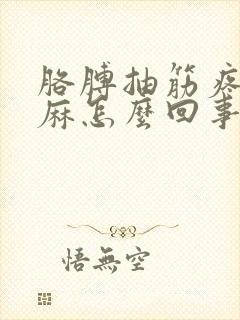 胳膊抽筋疼
麻怎麼回事
悟無空